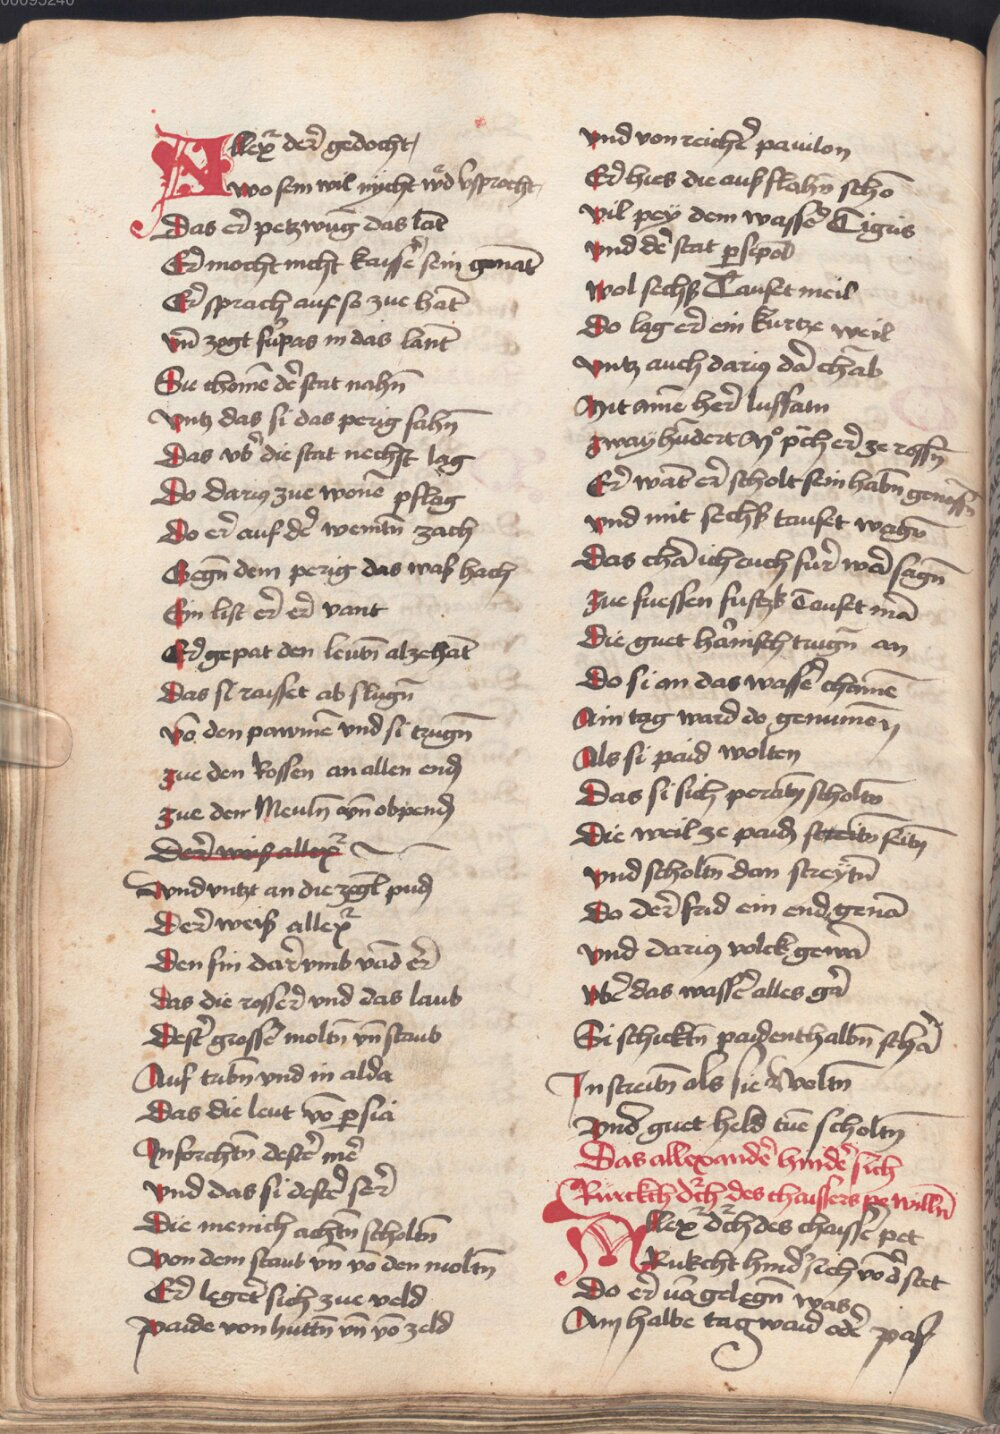 00095240
Allex̄ der̄ gedocht
wo sein wil nycht w̄d vsprocht
Das er̄ petzwūg das lāt
Er mocht nicht kaiser̄ sein genāt
Er sprach auf so zue hāt
vn̄ zogt fu᷑pas in das lant
Sie chomē der̄ stat nahn̄
vntz das si das perig sahn̄
Das vb̄ die stat nechst lag
Do darius zue wonē pflag
Do er̄ auf der̄ weintn̄ zach
Gegn̄ dem perig das was hach
Ein list er̄ er̄ vant
Er gepat den leutn̄ alzehāt
Das si raisset ab slugn̄
vō den pawmē vnd si trugn̄
zue den Rossen an allen end
zue den Meuln̄ vn̄ obpend
Der̄ weis allex̄
vnd vntzt an die zogl pūd
Der̄ weis allex̄
Den sin dar̄ vmb vād er̄
das die rosser̄ vnd das laub
Dest̄ grosse moltn̄ vn̄ staub
Auf tribn̄ vnd in alda
Das die leut vō persia
In forchtn̄ dester̄ mē
vnd das si dester̄ ser̄
Die menich achtn̄ scholtn̄
von dem staub vn̄ vō den moltn̄
Er legert sich zue veld
paide von huttn̄ vn̄ vō zeld
vnd von reicher̄ pauilon
Er hies die auf slahn̄ schō
vil pey dem wasser̄ Tigris
vnd der̄ stat persipol
wol sechs Tauset meil
Do lag er̄ ein kurtze weil
vntz auch darius dar̄ chāb
Mit ainē her̄ lussam
zway hūdert Mo prach er̄ ze rossn̄
Er wāt er̄ scholt sein habn̄ genossn̄
vnd mit sechs tauset wagn̄
Das chā ich euch fur̄ war̄ sagn̄
zue fuessen fuftzk Tauset mā
Die guet harnisch trugn̄ an
Do si an das wasser̄ chamē
Ain tag ward do genumen
Als si paid wolten
Das si sich peratn̄ scholtn̄
Die weil ze paid streitn̄ seitn̄
vnd scholtn̄ dan streytn̄
Do der̄ frid ein end genā
vnd darius volck gewā
vber̄ das wasser̄ alles gar̄
Si schicktn̄ paidenthalbn̄ schar̄
In streitn̄ als sie woltn̄
Vnd guet held tuē scholtn̄
Das allexander̄ hinder̄ sich
Ruckch durch des chaissers pe willn̄
Allex̄ durch des chaisser̄ pet
Rukcht hind̄ sich vō der̄ stet
Do er̄ vōr gelegn̄ was
Ain halbe tagwaid oder̄ pas